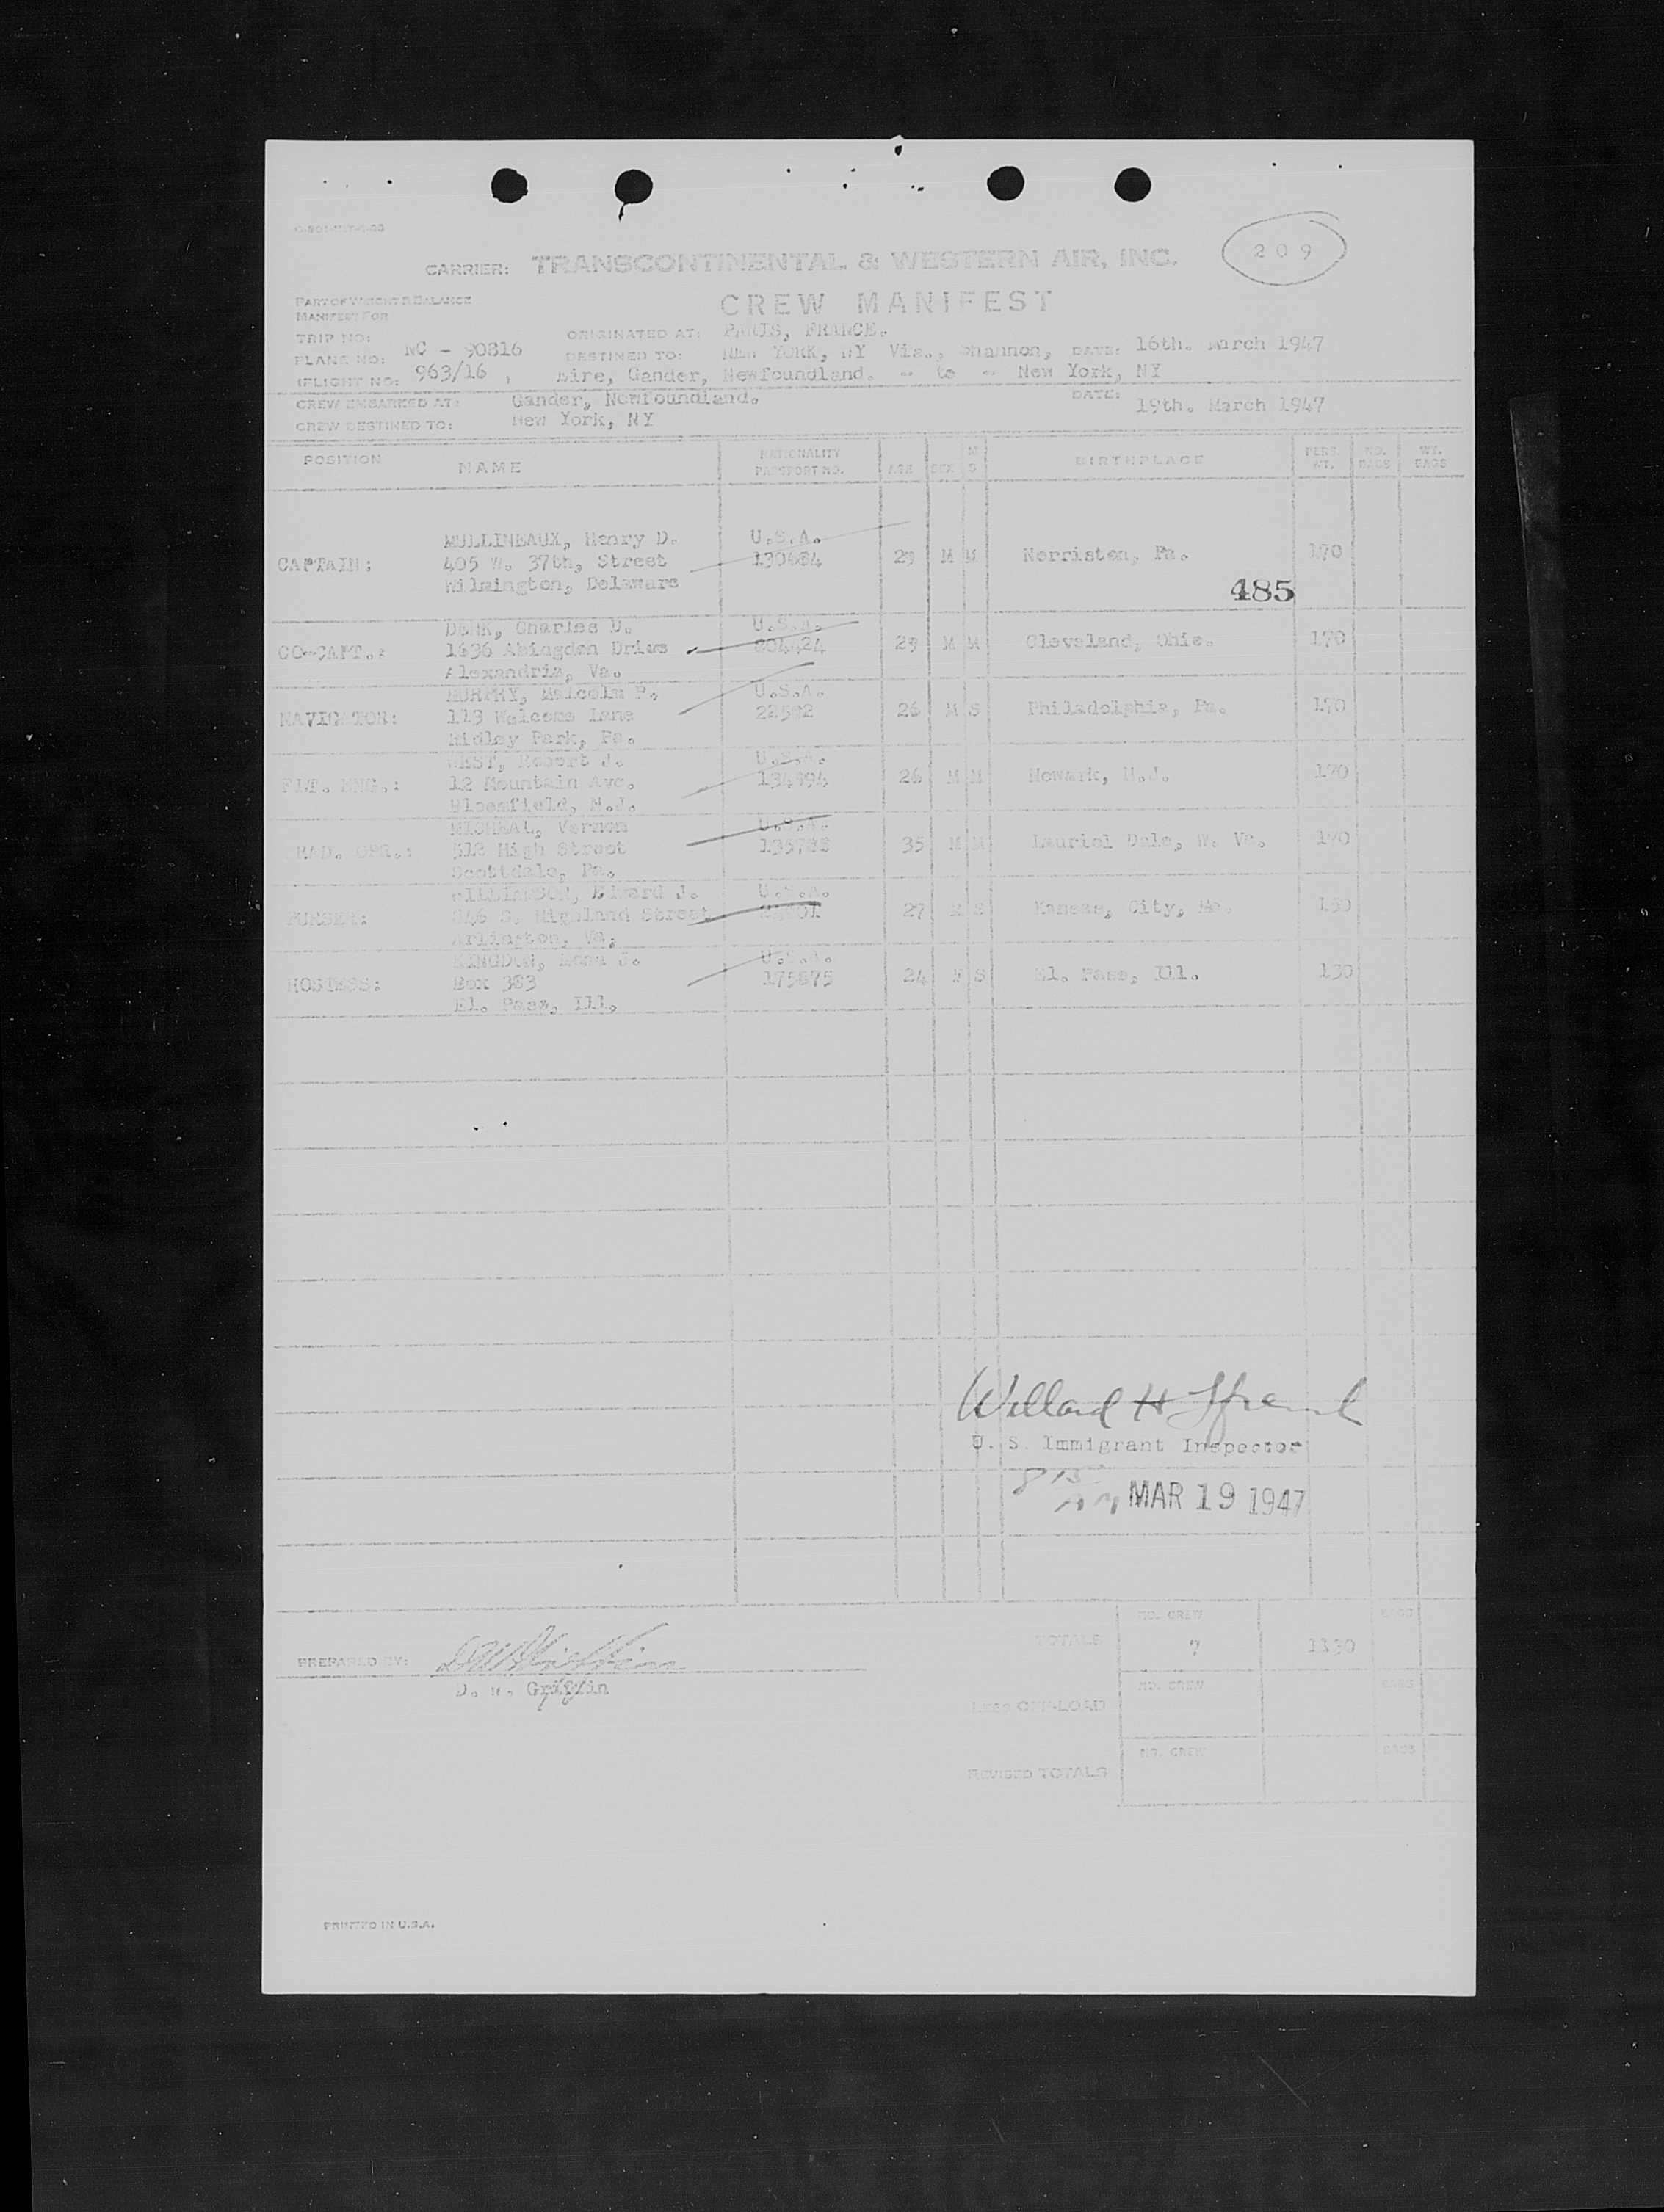 209
CARRIER: TRANSCONTINENTAL & WESTERN AIR, INC.
PART OF WEIGHT & BALANCE
MANIFEST FOR
CREW MANIFEST
TRIP NO:
ORIGINATED AT: PARIS, FRANCE.
PLANE NO: NC - 90816
DESTINED TO: NEW YORK, NY Via., Shannon, DATE: 16th. March 1947
(FLIGHT NO: 963/16 , Eire, Gander, Newfoundland. - to - New York, NY
CREW EMBARKED AT: Gander, Newfoundland. DATE: 19th. March 1947
CREW DESTINED TO: New York, NY
POSITION NAME NATIONALITY PASSPORT NO. AGE SEX M S BIRTHPLACE PERS. WT. NO. BAGS WT. BAGS
MULLINEAUX, Henry D. U.S.A.
CAPTAIN: 405 W. 37th, Street 29 M M Norriston, Pa. 170
Wilmington, Delaware
485
Charles D. U.S.A.
CO-CAPT.: 1636 Abingdon Drive 29 M M Cleveland, Ohio. 170
Alexandria, Va.
MURPHY, Malcolm P. U.S.A.
NAVIGATOR: 113 Welcome Lane 26 M S Philadelphia, Pa. 170
Ridley Park, Pa.
WEST, Robert J. U.S.A.
FLT. ENG.: 12 Mountain Ave. 26 M M Newark, N.J. 170
Bloomfield, N.J.
Vernon U.S.A.
RAD. OPR.: 512 High Street 35 M M Lauriel Dale, W. Va. 170
Scottdale, Pa.
Edward J. U.S.A.
PURSER: S. Highland Street 27 M S Kansas, City, Mo. 150
Arlington, Va,
KINGDON, J. U.S.A.
HOSTESS: Box 383 175875 24 F S El. Paso, Ill. 130
El. Paso, Ill.
Willard H
U. S. Immigrant Inspector
8 15
AM MAR 19 1947
TOTALS NO. CREW 7 1130 BAGS
PREPARED BY:
Griffin
LESS OFF-LOAD NO. CREW BAGS
REVISED TOTALS NO. CREW BAGS
PRINTED IN U.S.A.